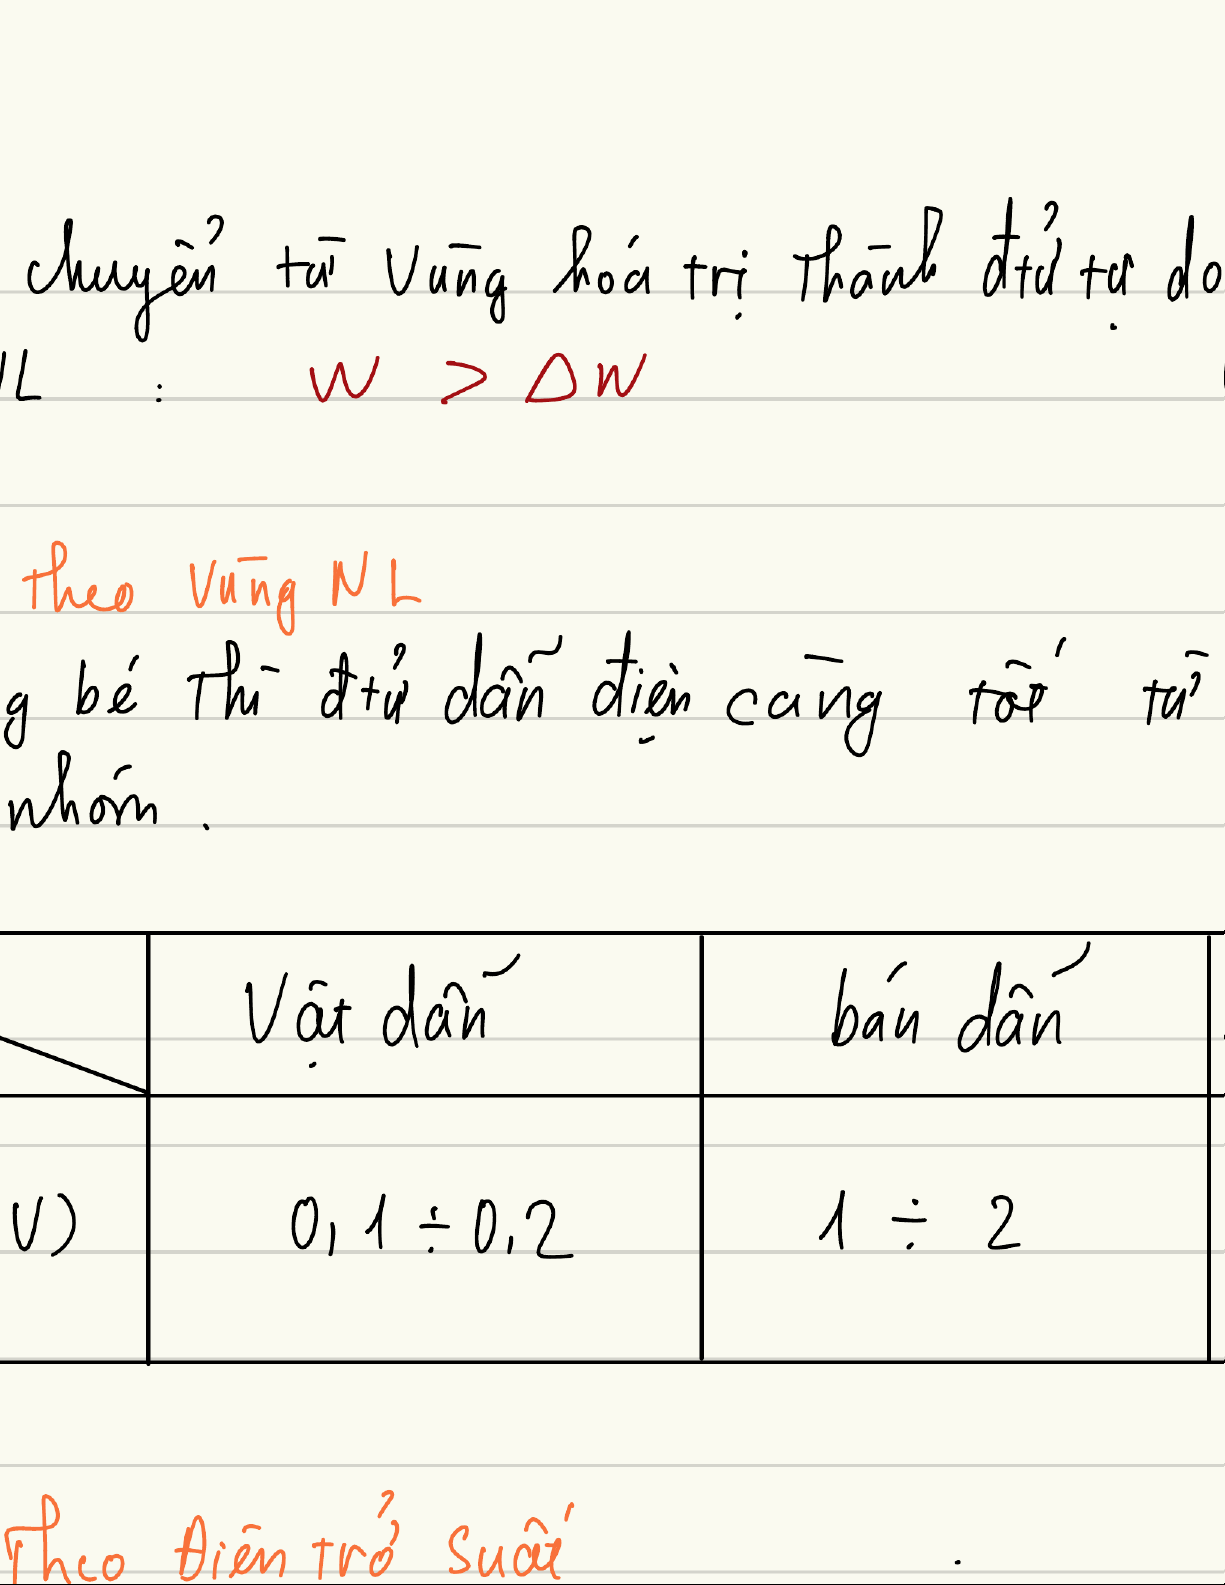 chuyển từ vùng hoá trị thành đtử tự do
NL : W > ΔW
theo vùng NL
g bé thì đtử dẫn điện càng tốt từ
nhóm.
Vật dẫn bán dẫn
V) 0,1 ÷ 0,2 1 ÷ 2
Theo Điện trở suất